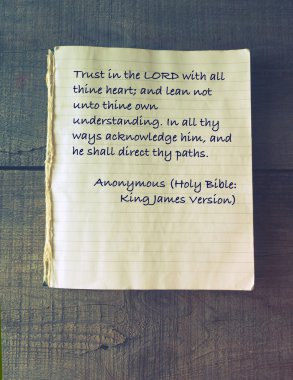 Trust in the LORD with all
thine heart; and lean not
unto thine own
understanding. In all thy
ways acknowledge him, and
he shall direct thy paths.
Anonymous (Holy Bible:
King James Version)